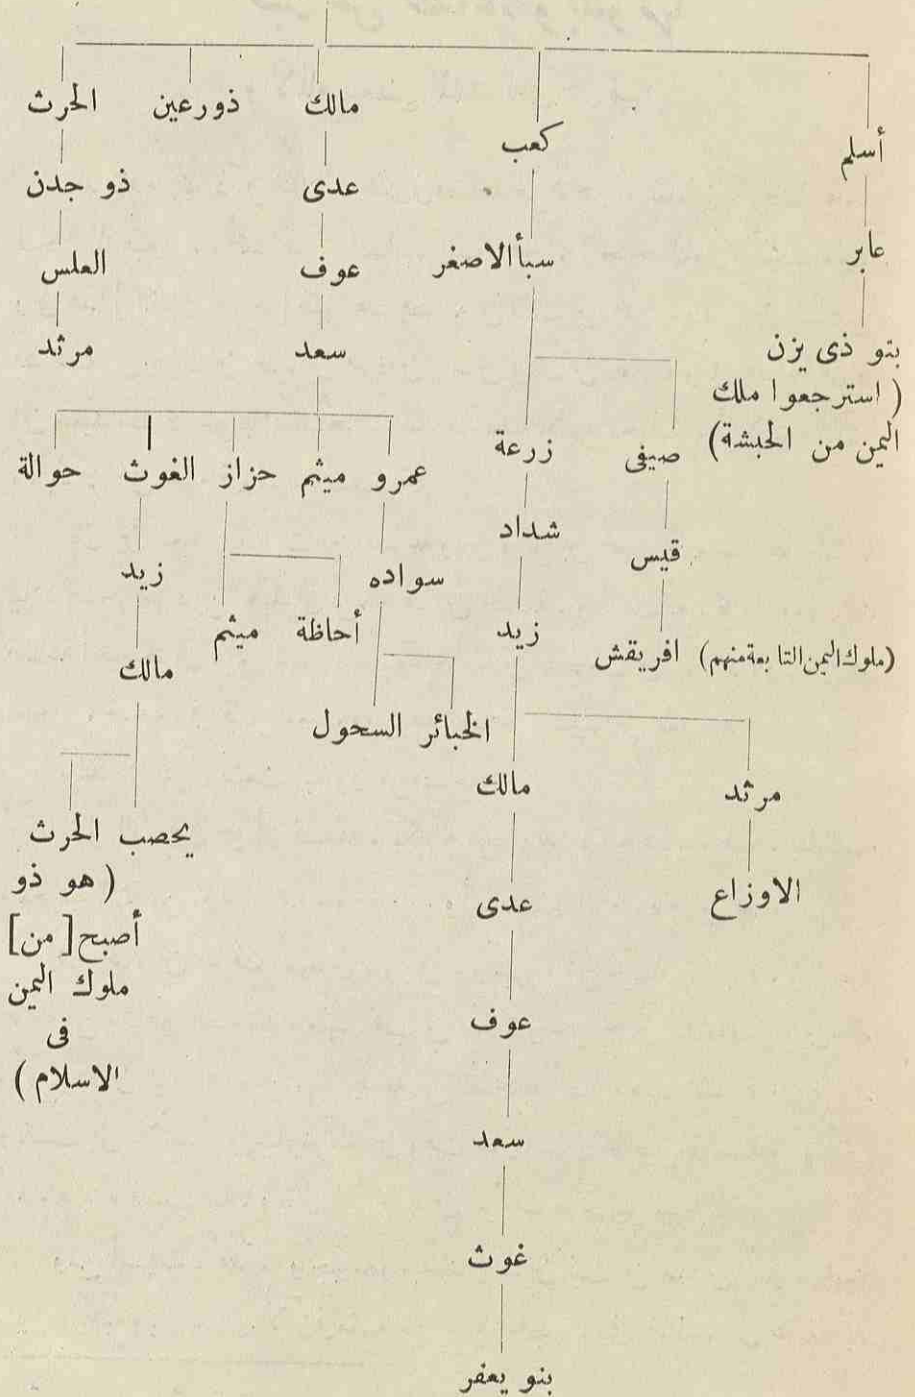 أسلم
عابر
بنو ذى يزن
(استرجعوا ملك
اليمن من الحبشة)
كعب
سبأ الاصغر
صيفى
قيس
افريقش (ملوك اليمن التابعة منهم)
زرعة
شداد
زيد
مرثد
الاوزاع
مالك
عدى
عوف
سعد
غوث
بنو يعفر
مالك
عدى
عوف
سعد
عمرو ميثم حزاز الغوث حوالة
سواده
الخبائر السحول
أحاظة ميثم
زيد
مالك
يحصب الحرث
(هو ذو
أصبح [من]
ملوك اليمن
فى
الاسلام)
ذورعين
الحرث
ذو جدن
العلس
مرثد